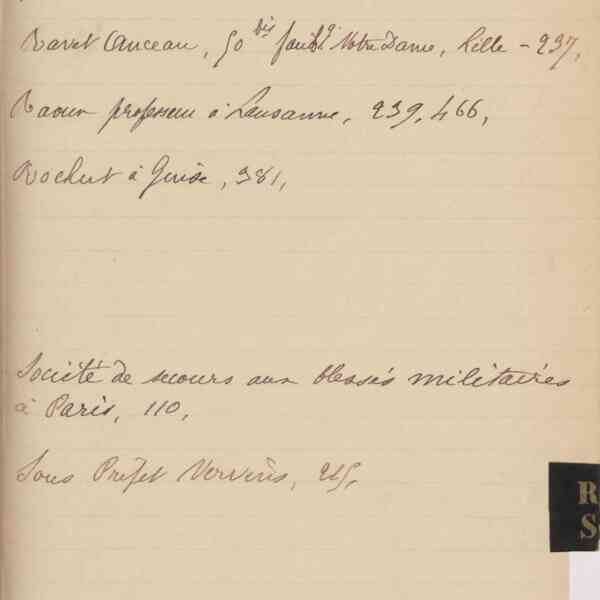 Ravet Anceau, 50 bis faubg Notre Dame, Lille - 237,
Raoux professeur à Lausanne, 239, 466,
Rochut à Guise, 381,
Société de secours aux blessés militaires
à Paris, 110,
Sous Préfet Vervins, 215,
R
S